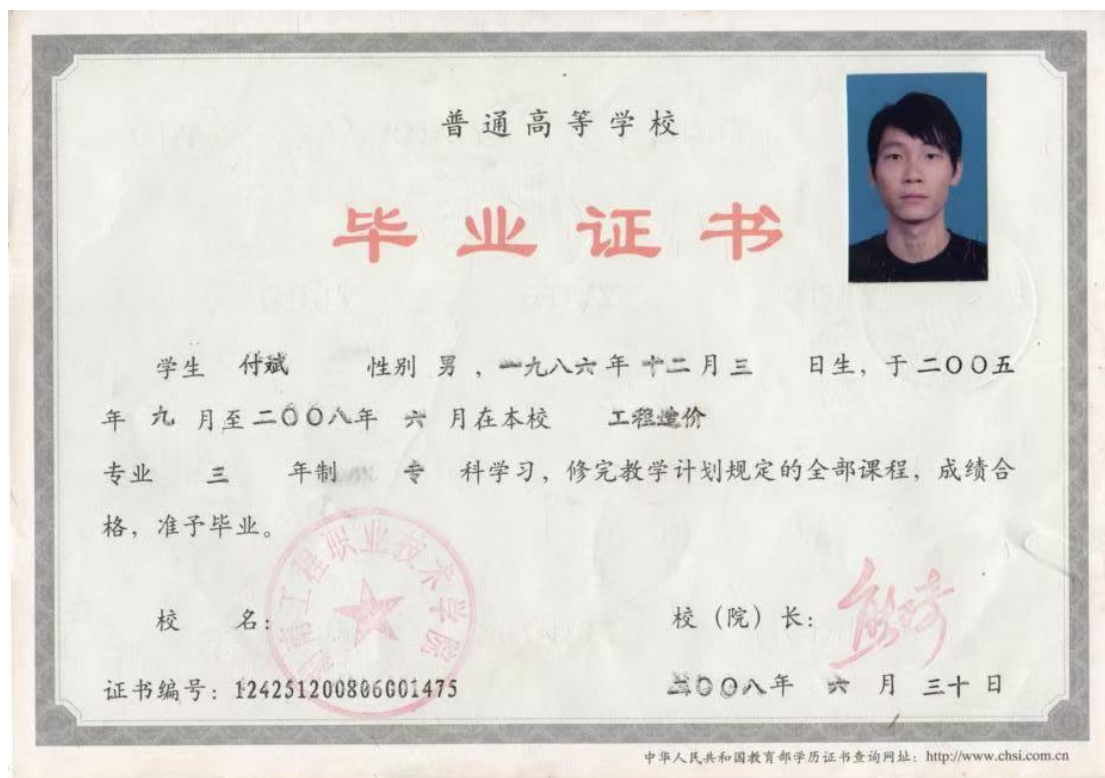 普通高等学校
毕业证书
学生 付斌 性别 男，一九八六年 十二 月 三 日生，于 二〇〇五
年 九 月至 二〇〇八年 六 月在本校 工程造价
专业 三 年制 专 科学习，修完教学计划规定的全部课程，成绩合
格，准予毕业。
工程职业技术学院
校 名： 校（院）长：
证书编号：124251200806001475 二〇〇八年 六 月 三十 日
中华人民共和国教育部学历证书查询网址：http://www.chsi.com.cn